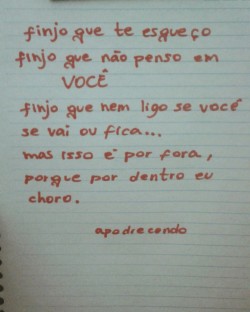 finjo que te esqueço
finjo que não penso em
VOCÊ
finjo que nem ligo se você
se vai ou fica...
mas isso é por fora,
porque por dentro eu
choro.
apodrecendo